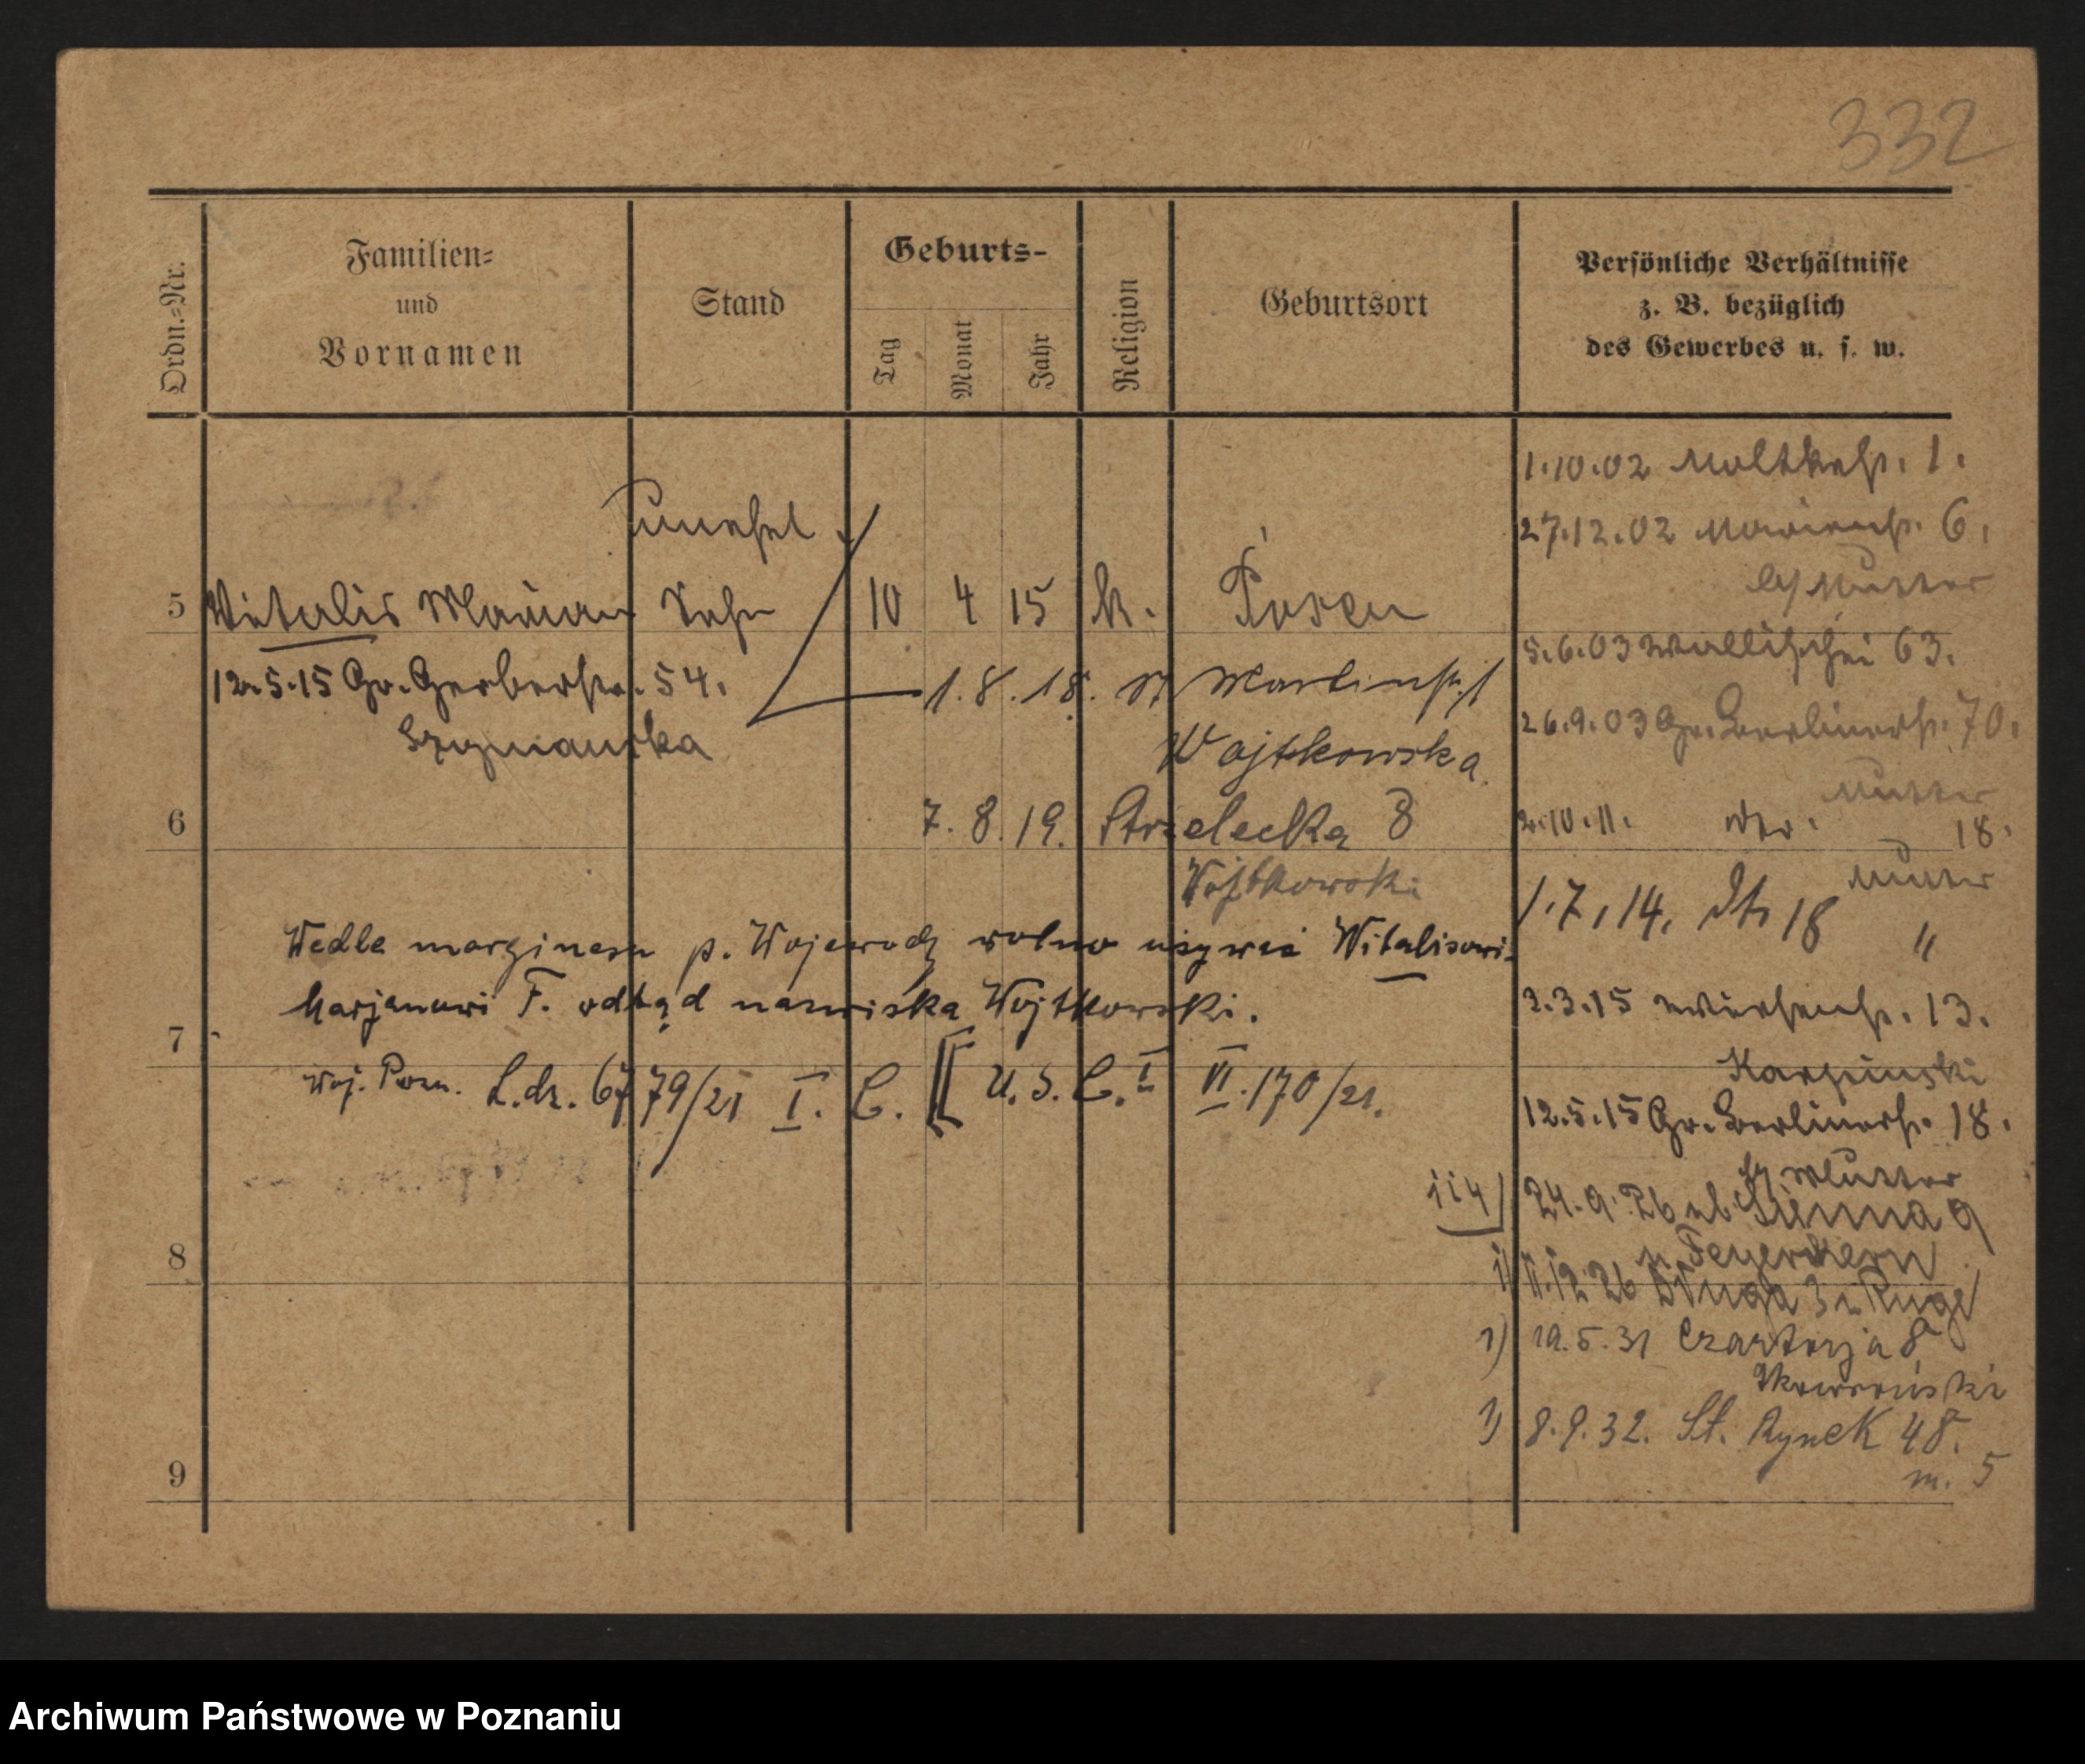 332
Ordn.-Nr.
Familien-
und
Vornamen
Stand
Geburts-
Tag
Monat
Jahr
Religion
Geburtsort
Persönliche Verhältnisse
z. B. bezüglich
des Gewerbes u. s. w.
1.10.02 Moltkestr. 1.
27.12.02 6.
Mutter
5 Vitalis Marian Sohn 10 4 15 k. Posen
5.6.03 Wallischei 63.
12.5.15 Gr. Gerberstr. 54. 1.8.18. St Martinstr.
26.9.03 Gr. Berlinerstr. 70.
Szymanska
Wojtkowska
Mutter
6 7. 8. 19. Strzelecka 8
2.10.11. 18.
Mutter
Wojtkowski
1.7.14. 18 "
Wedle marginesu p. Wojewody wolno używać Witalisowi-
Marjanowi F. odtąd nazwiska Wojtkowski.
2.3.15 13.
7
Karpinski
Woj. Pozn. L.dz. 6779/21 I. C. U.S.C. I VI.170/21.
12.5.15 Gr. Berlinerstr. 18.
Mutter
24.9.26 Sienna 9
8
u Feyerchern
11.12.26 Długa 3 u Ruge
1) 19.5.31 Czartorja 8
Skowroński
1) 8.9.32. St. Rynek 48.
m. 5
9
Archiwum Państwowe w Poznaniu